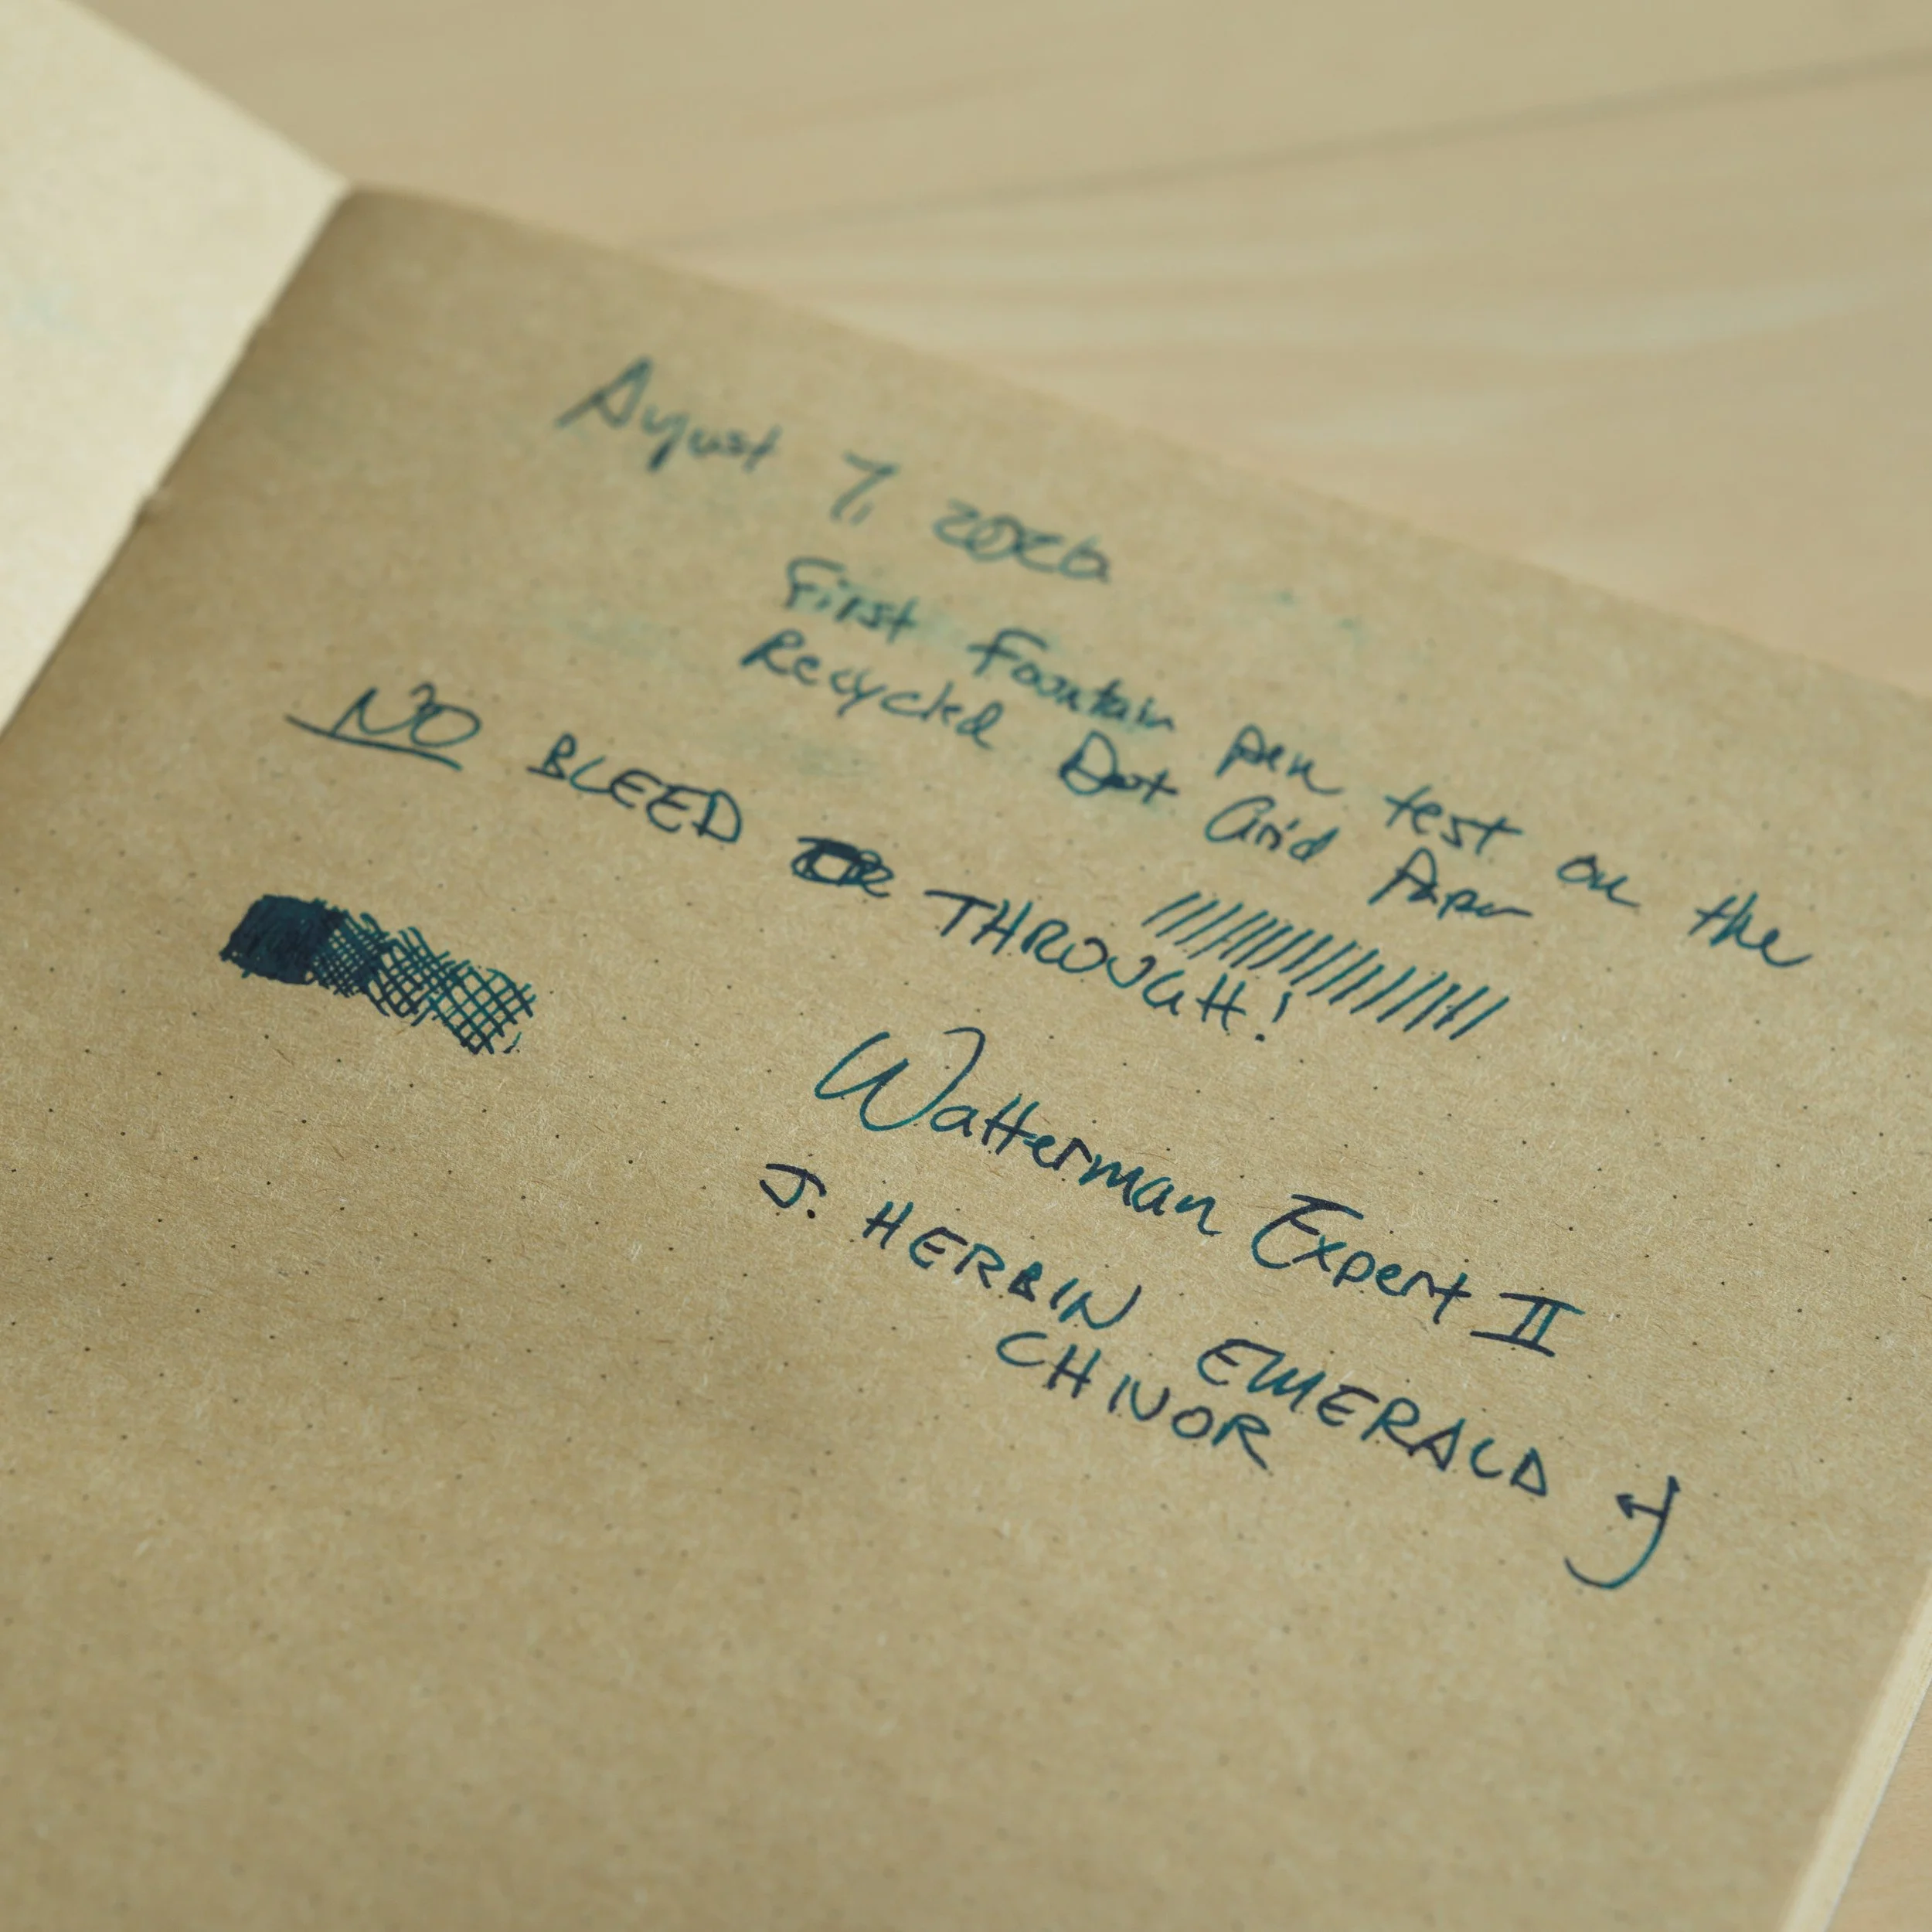 August 7, 2026
First Fountain pen test on the
Recycled Dot Grid Paper
NO BLEED THROUGH!
Watterman Expert II
J. HERBIN EMERALD
CHIVOR